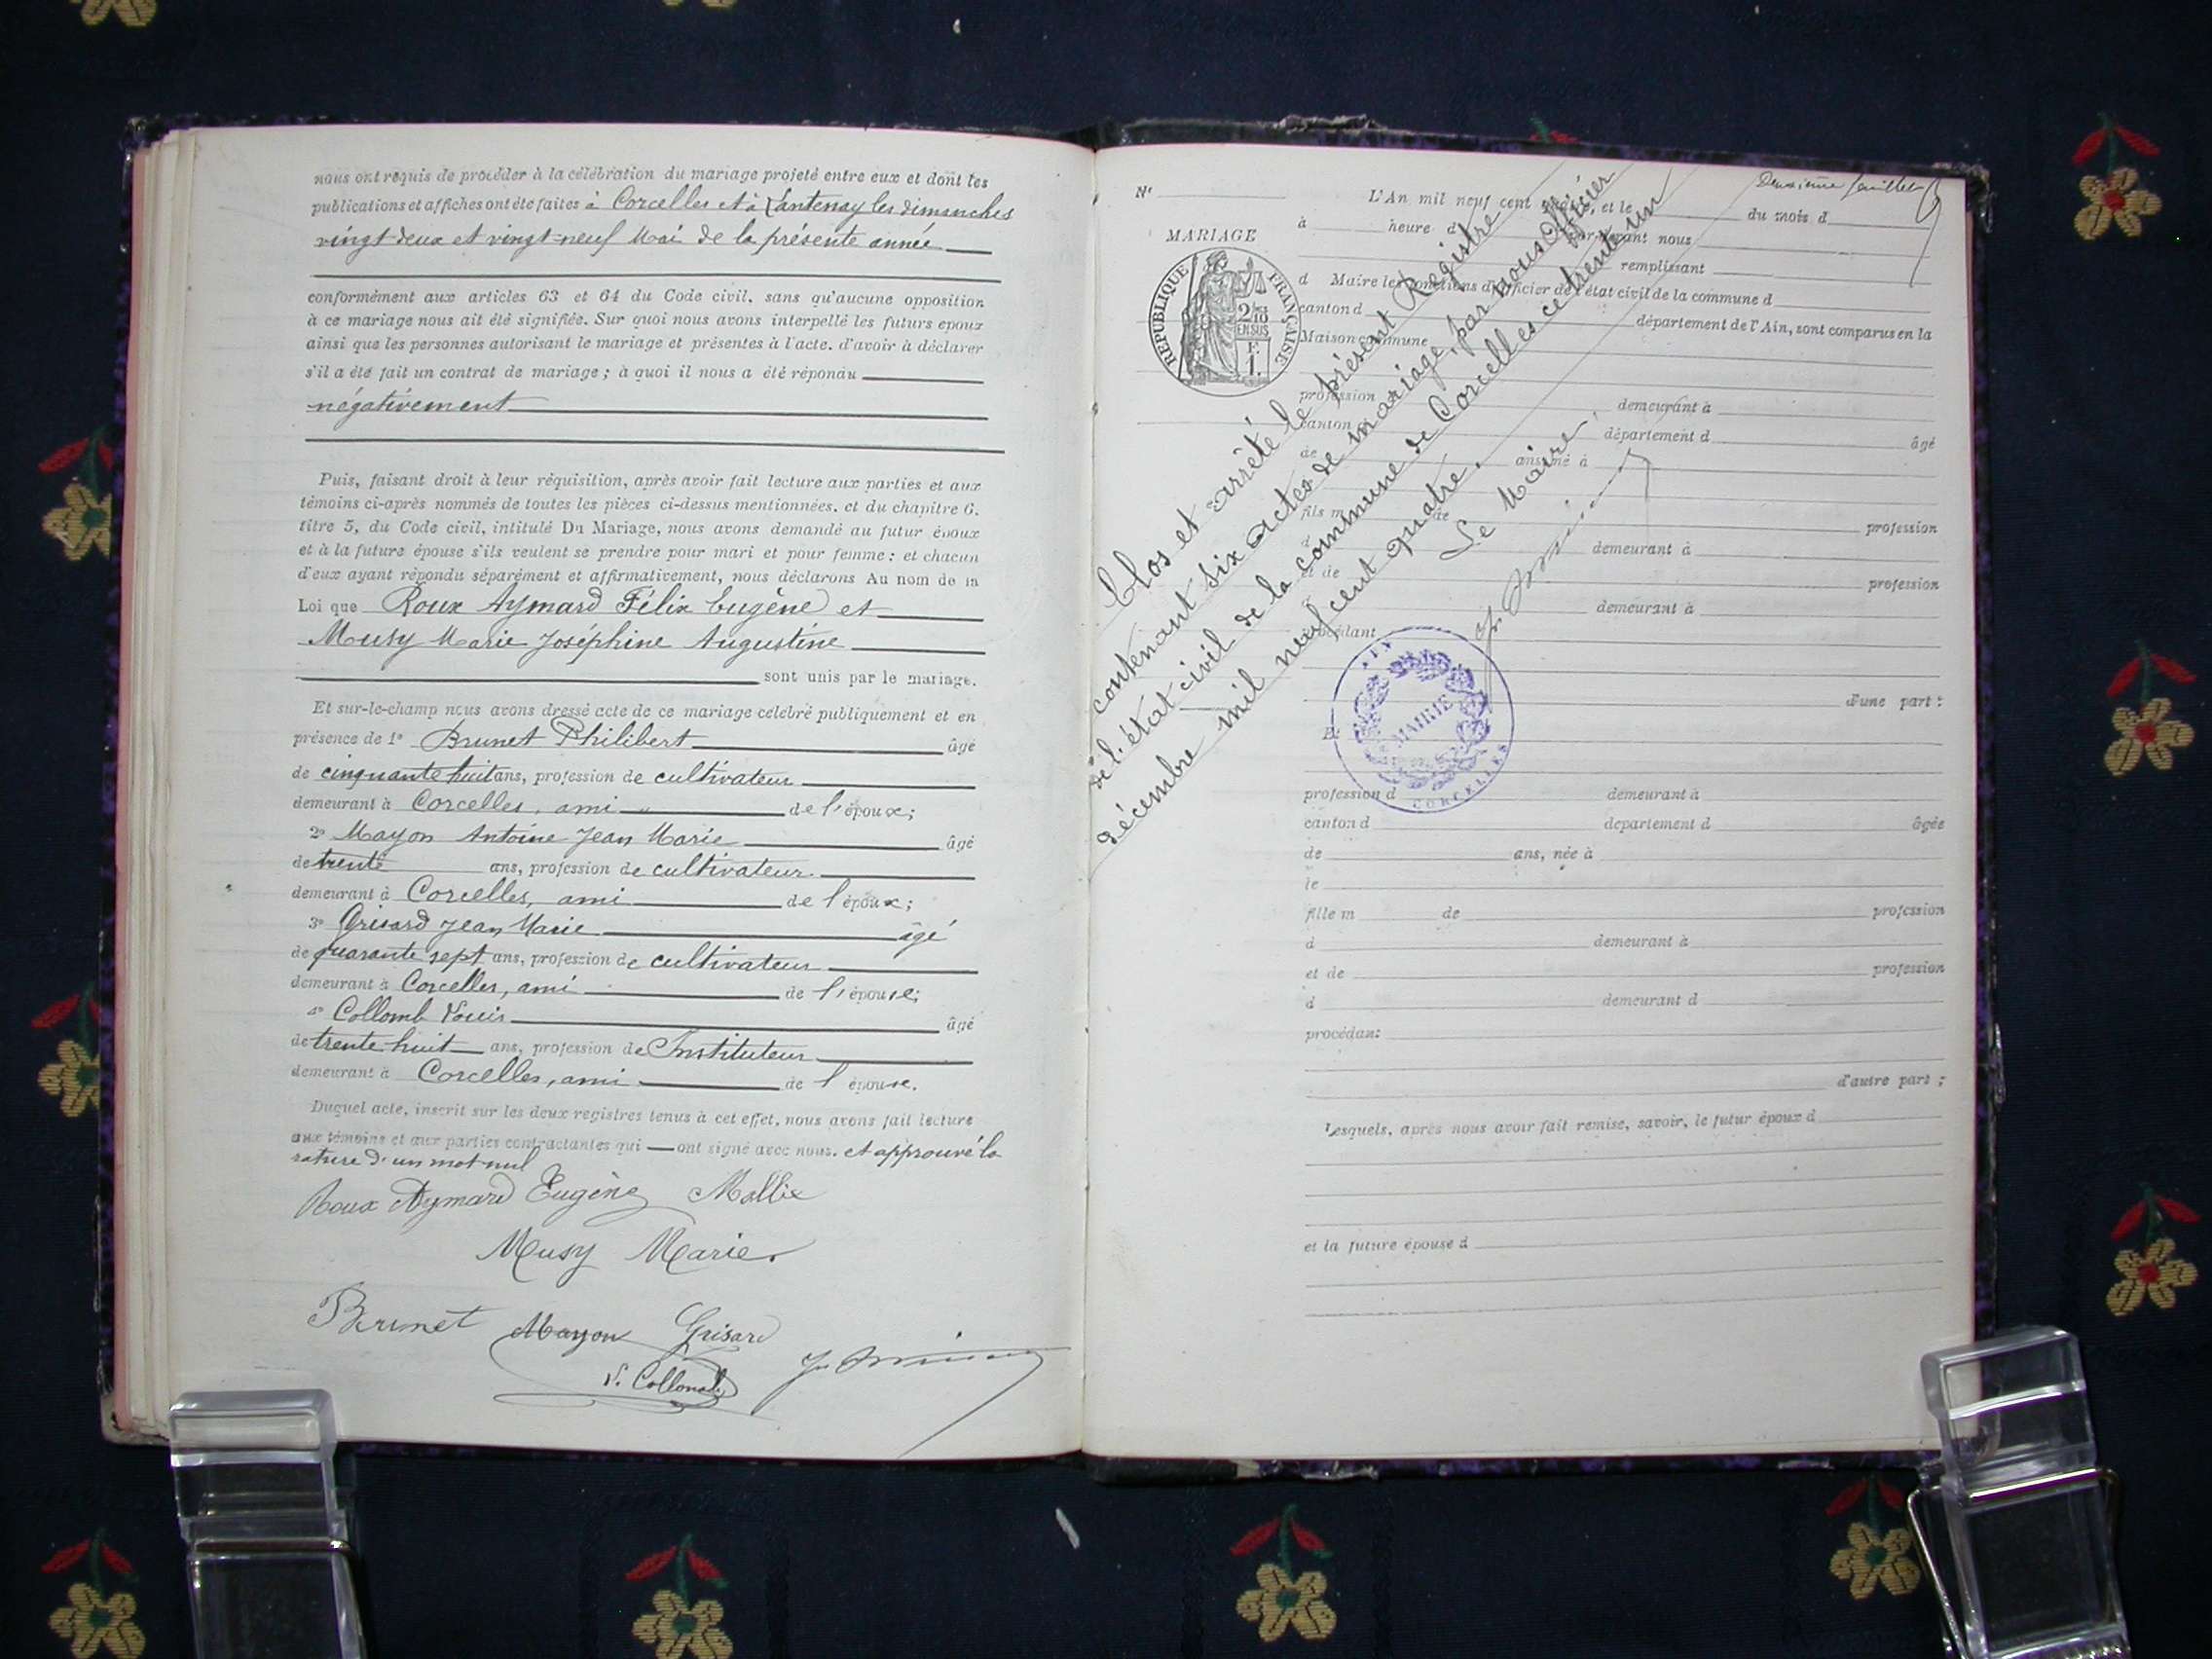 nous ont requis de procéder à la célébration du mariage projeté entre eux et dont les
publications et affiches ont été faites à Corcelles et à Lantenay les dimanches
vingt deux et vingt-neuf Mai de la présente année
conformément aux articles 63 et 64 du Code civil, sans qu'aucune opposition
à ce mariage nous ait été signifiée. Sur quoi nous avons interpellé les futurs époux
ainsi que les personnes autorisant le mariage et présentes à l'acte, d'avoir à déclarer
s'il a été fait un contrat de mariage ; à quoi il nous a été répondu
négativement
Puis, faisant droit à leur réquisition, après avoir fait lecture aux parties et aux
témoins ci-après nommés de toutes les pièces ci-dessus mentionnées, et du chapitre 6,
titre 5, du Code civil, intitulé Du Mariage, nous avons demandé au futur époux
et à la future épouse s'ils veulent se prendre pour mari et pour femme : et chacun
d'eux ayant répondu séparément et affirmativement, nous déclarons Au nom de la
Loi que Roux Aymard Félix Eugène et
Musy Marie Joséphine Augustine
sont unis par le mariage.
Et sur-le-champ nous avons dressé acte de ce mariage célébré publiquement et en
présence de 1° Brunet Philibert âgé
de cinquante huit ans, profession de cultivateur
demeurant à Corcelles, ami de l'époux;
2° Mayon Antoine Jean Marie âgé
de trente ans, profession de cultivateur
demeurant à Corcelles, ami de l'époux;
3° Grisard Jean Marie âgé
de quarante sept ans, profession de cultivateur
demeurant à Corcelles, ami de l'épouse;
4° Collomb Louis âgé
de trente huit ans, profession de Instituteur
demeurant à Corcelles, ami de l'épouse.
Duquel acte, inscrit sur les deux registres tenus à cet effet, nous avons fait lecture
aux témoins et aux parties contractantes qui ont signé avec nous. et approuvé la
rature d'un mot nul
Roux Aymard Eugène
Musy Marie
Brunet Mayon Grisard
L. Collomb
Deuxième feuillet
N°
MARIAGE
REPUBLIQUE FRANÇAISE
2/10
EN SUS
F.
1.
L'An mil neuf cent et le du mois d
à heure d par-devant nous
remplissant
d Maire les fonctions d'officier de l'état civil de la commune d
canton d département de l'Ain, sont comparus en la
Maison commune
profession demeurant à
canton département d âgé
de ans, né à
fils m de profession
d demeurant à
et de profession
demeurant à
procédant
d'une part :
Et
profession d demeurant à
canton d département d âgée
de ans, née à
le
fille m de profession
d demeurant à
et de profession
d demeurant d
procédant
d'autre part ;
Lesquels, après nous avoir fait remise, savoir, le futur époux d
et la future épouse d
Clos et arrêté le présent Registre
contenant six actes de mariage, par nous Officier
de l'état civil de la commune de Corcelles ce trente un
décembre mil neuf cent quatre.
Le Maire
AIN
MAIRIE
CORCELLES